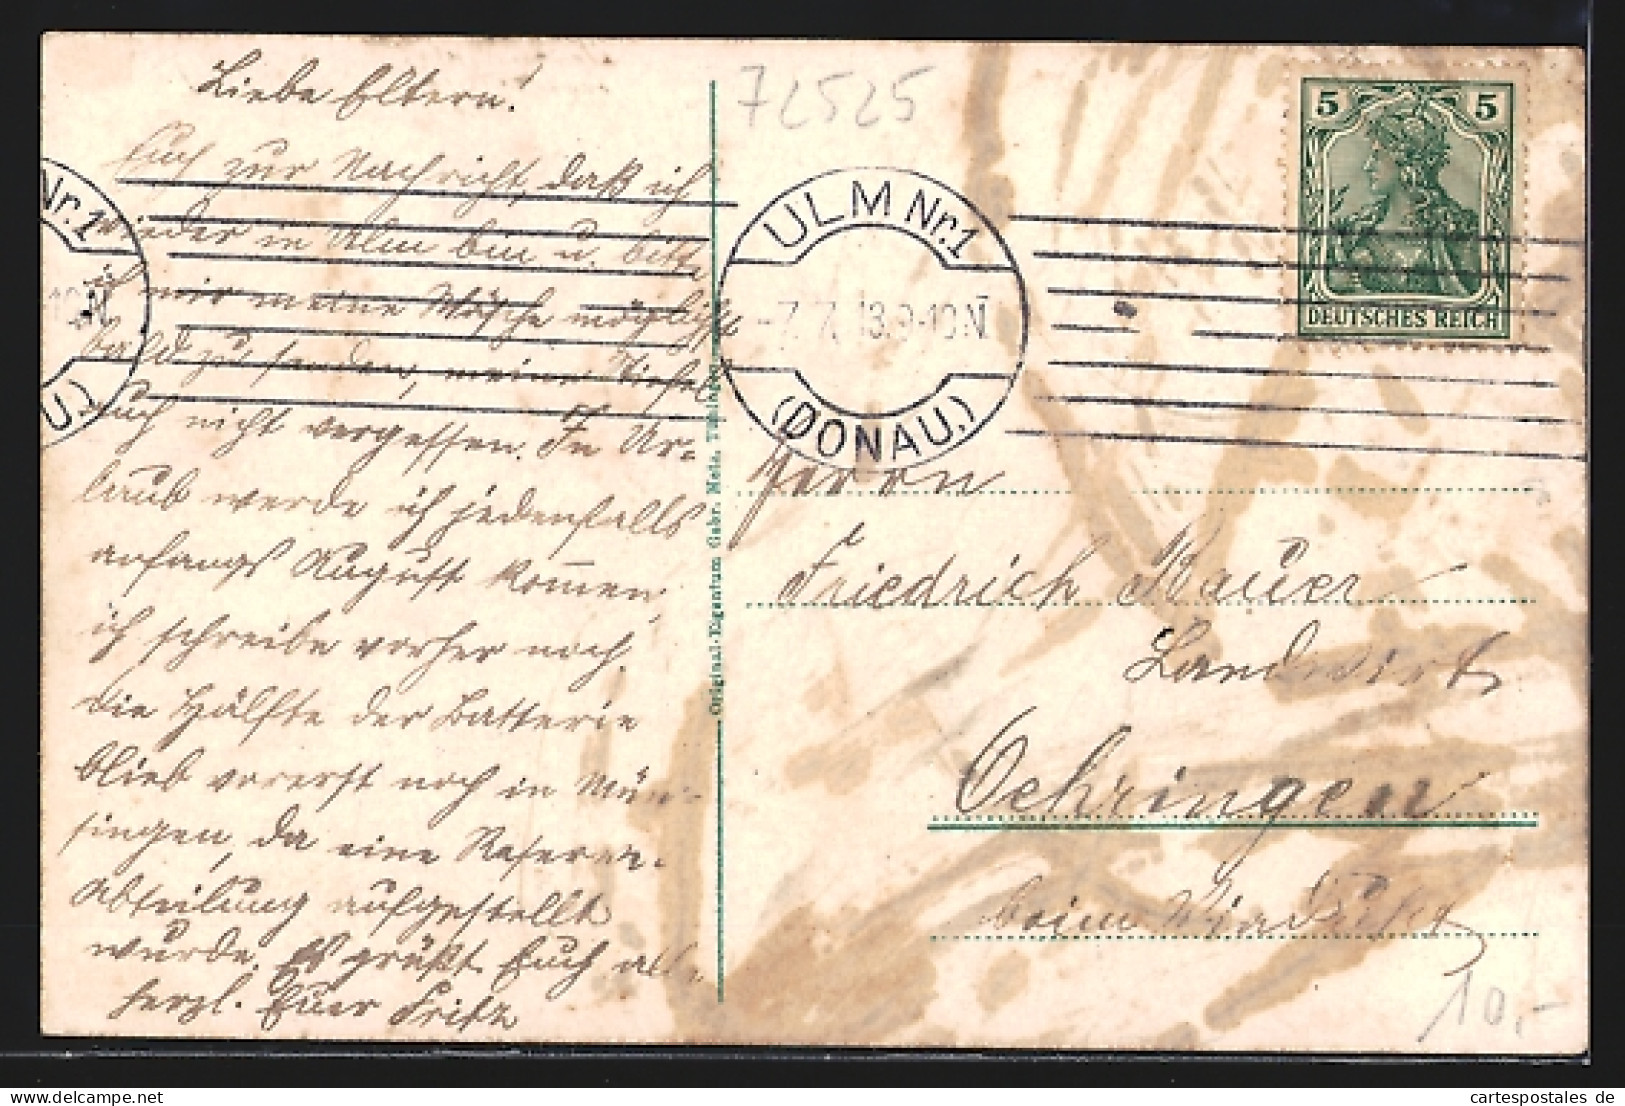 Liebe Eltern!
Euch zur Nachricht, daß ich
wieder in Ulm bin u. bitte
ich mir meine Wäsche möglichst
bald zu senden, meine Stiefel
auch nicht vergessen. In Ur-
laub werde ich jedenfalls
anfangs August kommen,
ich schreibe vorher noch.
Die Hälfte der Batterie
blieb vorerst noch in Mün-
singen, da eine Reserve-
Abteilung aufgestellt
wurde. Es grüßt Euch alle
herzl. Euer Fritz
Original-Eigentum Gebr. Metz, Tübingen
72525
Nr. 1
ULM Nr. 1
-7.7.13.9-10N
(DONAU.)
5 5
DEUTSCHES REICH
Herrn
Friedrich Bauer
Landwirt
Oehringen
beim
10,-
cartespostales de